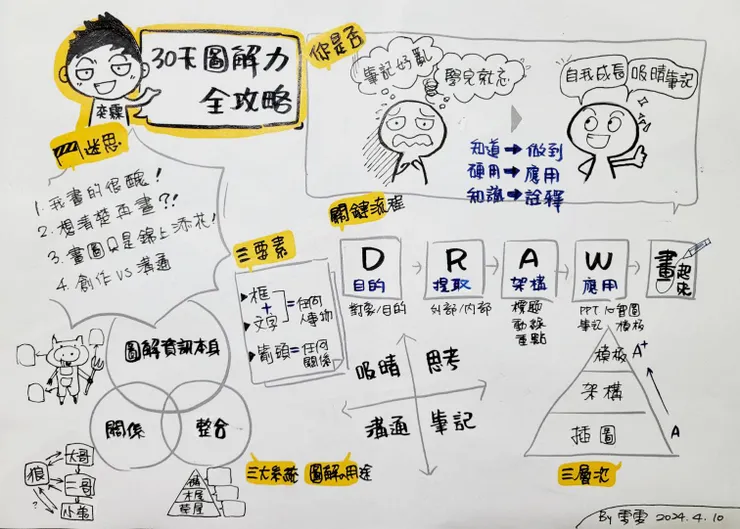 30天圖解力
全攻略
奕霖
你是否
筆記好亂
學完就忘
自我成長
吸睛筆記
知道→做到
硬用→應用
知識→詮釋
迷思
1. 我畫的很醜!
2. 想清楚再畫?!
3. 畫圖只是錦上添花!
4. 創作VS溝通
關鍵流程
D
目的
對象/目的
R
提取
外部/內部
A
架構
標題
動線
重點
W
應用
PPT 心智圖
筆記 模板
畫起來
三要素
框
+
文字
=任何
人事物
箭頭=任何
關係
圖解資訊本身
關係
整合
狼
大哥
二哥
小弟
?
磚
木屋
草屋
三大系統
吸睛
思考
溝通
筆記
圖解の用途
模板 A+
架構
插圖 A
三層次
By 雯雯 2024.4.10